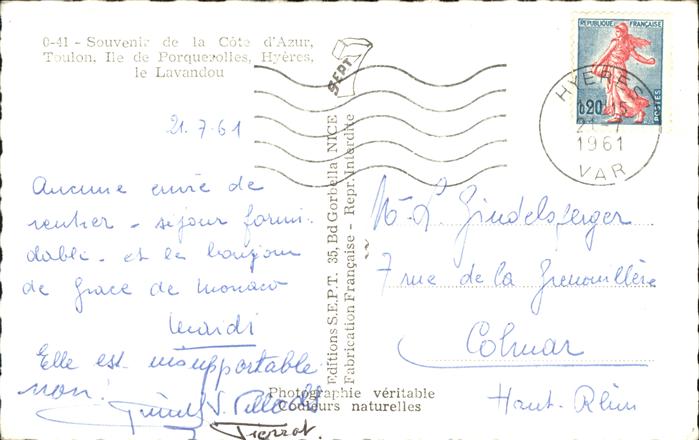 0-41 - Souvenir de la Côte d'Azur,
Toulon, Ile de Porquerolles, Hyères,
le Lavandou
21.7.61
Aucune envie de
rentrer - séjour formi-
dable - et le bonjour
de Grace de Monaco
Mardi
Elle est insupportable
non!
Pierrot.
Editions S.E.P.T. 35, Bd Gorbella NICE
Fabrication Française - Repr. Interdite
Photographie véritable
Couleurs naturelles
SEPT
REPUBLIQUE FRANÇAISE
0,20
POSTES
HYERES
21-7
1961
VAR
Gindelsperger
7 rue de la Grenouillère
Colmar
Haut-Rhin